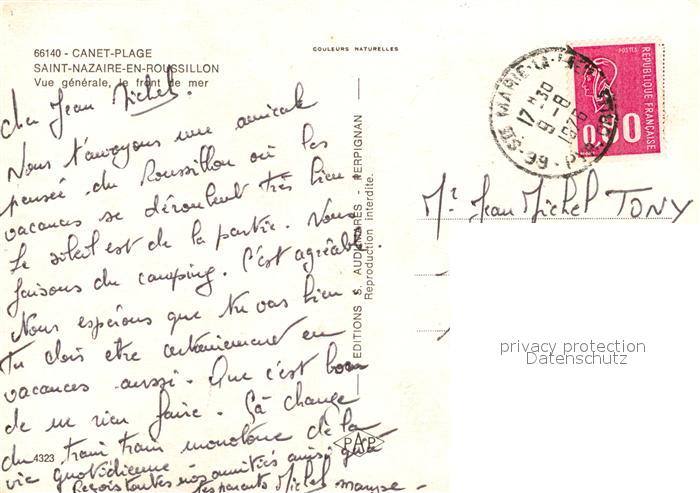 66140 - CANET-PLAGE
SAINT-NAZAIRE-EN-ROUSSILLON
Vue générale, le front de mer
COULEURS NATURELLES
Cher Jean Michel.
Nous t'envoyons une amicale
pensée du Roussillon où les
vacances se déroulent très bien
Le soleil est de la partie. Nous
faisons du camping. C'est agréable.
Nous espérons que tu vas bien.
Tu dois être certainement en
vacances aussi. Que c'est bon
de ne rien faire. Çà change
du train train monotone de la
vie quotidienne
Reçois toutes nos amitiés ainsi qu'à
tes parents Michel
4323
EDITIONS S. AUDUMARES - PERPIGNAN
Reproduction interdite.
PAP
66 - STE MARIE-LA-MER
17 H 30
9 - 8
1976
PYR.
POSTES
REPUBLIQUE FRANÇAISE
Mr Jean Michel TONY
privacy protection
Datenschutz